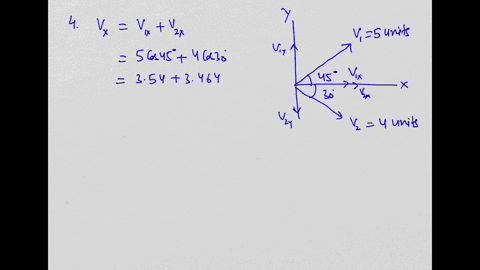 4. Vx = V1x + V2x
= 5 Cos 45° + 4 Cos 30°
= 3.54 + 3.464
Y
V1 = 5 units
V1y
45°
V1x
X
30°
V2x
V2y
V2 = 4 units